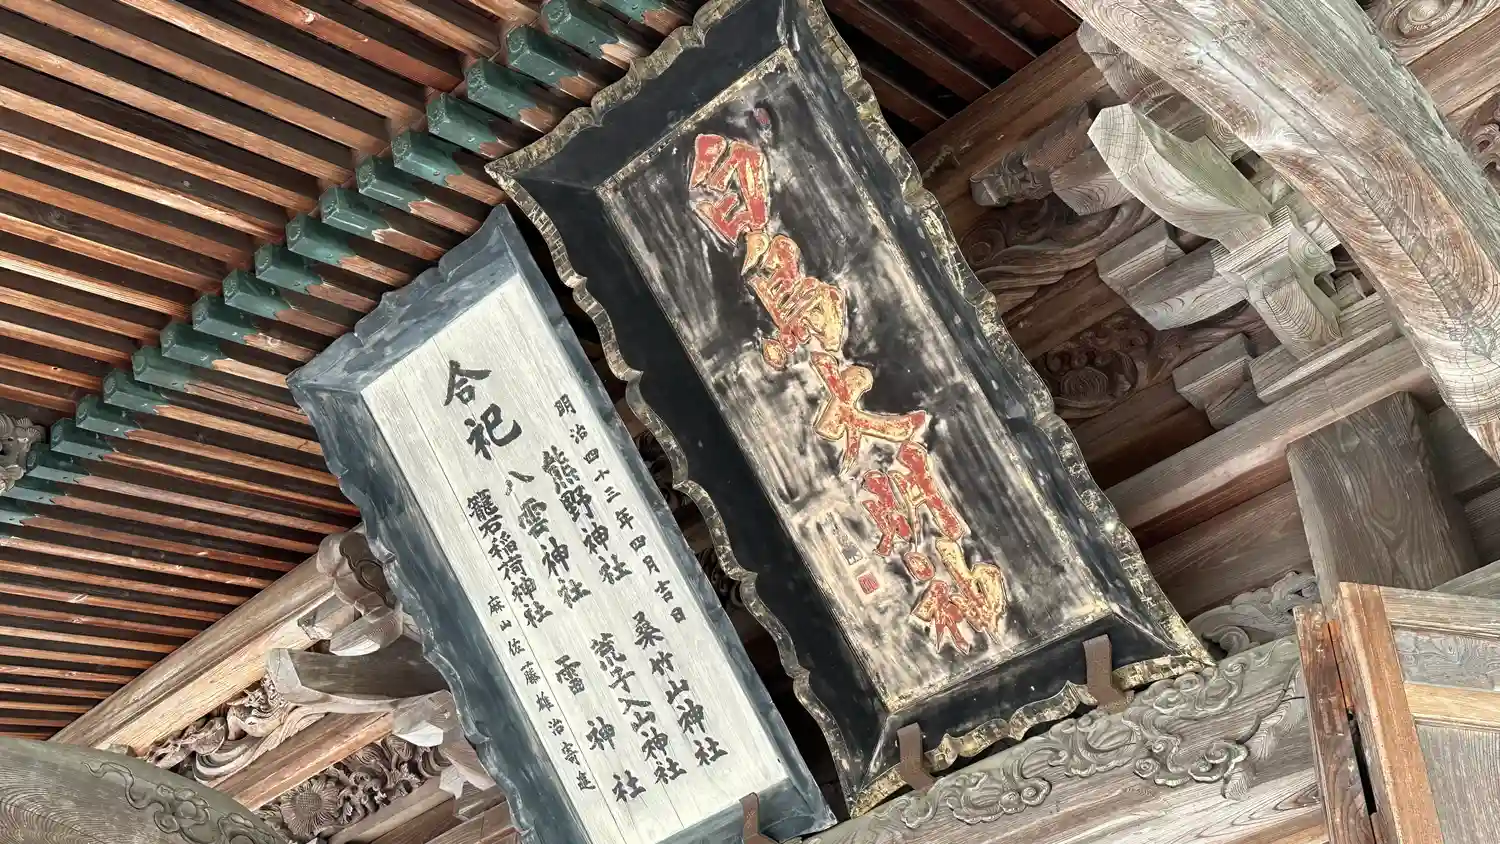 白鳥大明神
合祀
明治四十三年四月吉日
熊野神社 桑竹山神社
八雲神社 荒子入山神社
籠石稲荷神社 雷神社
麻山 佐藤雄治寄進